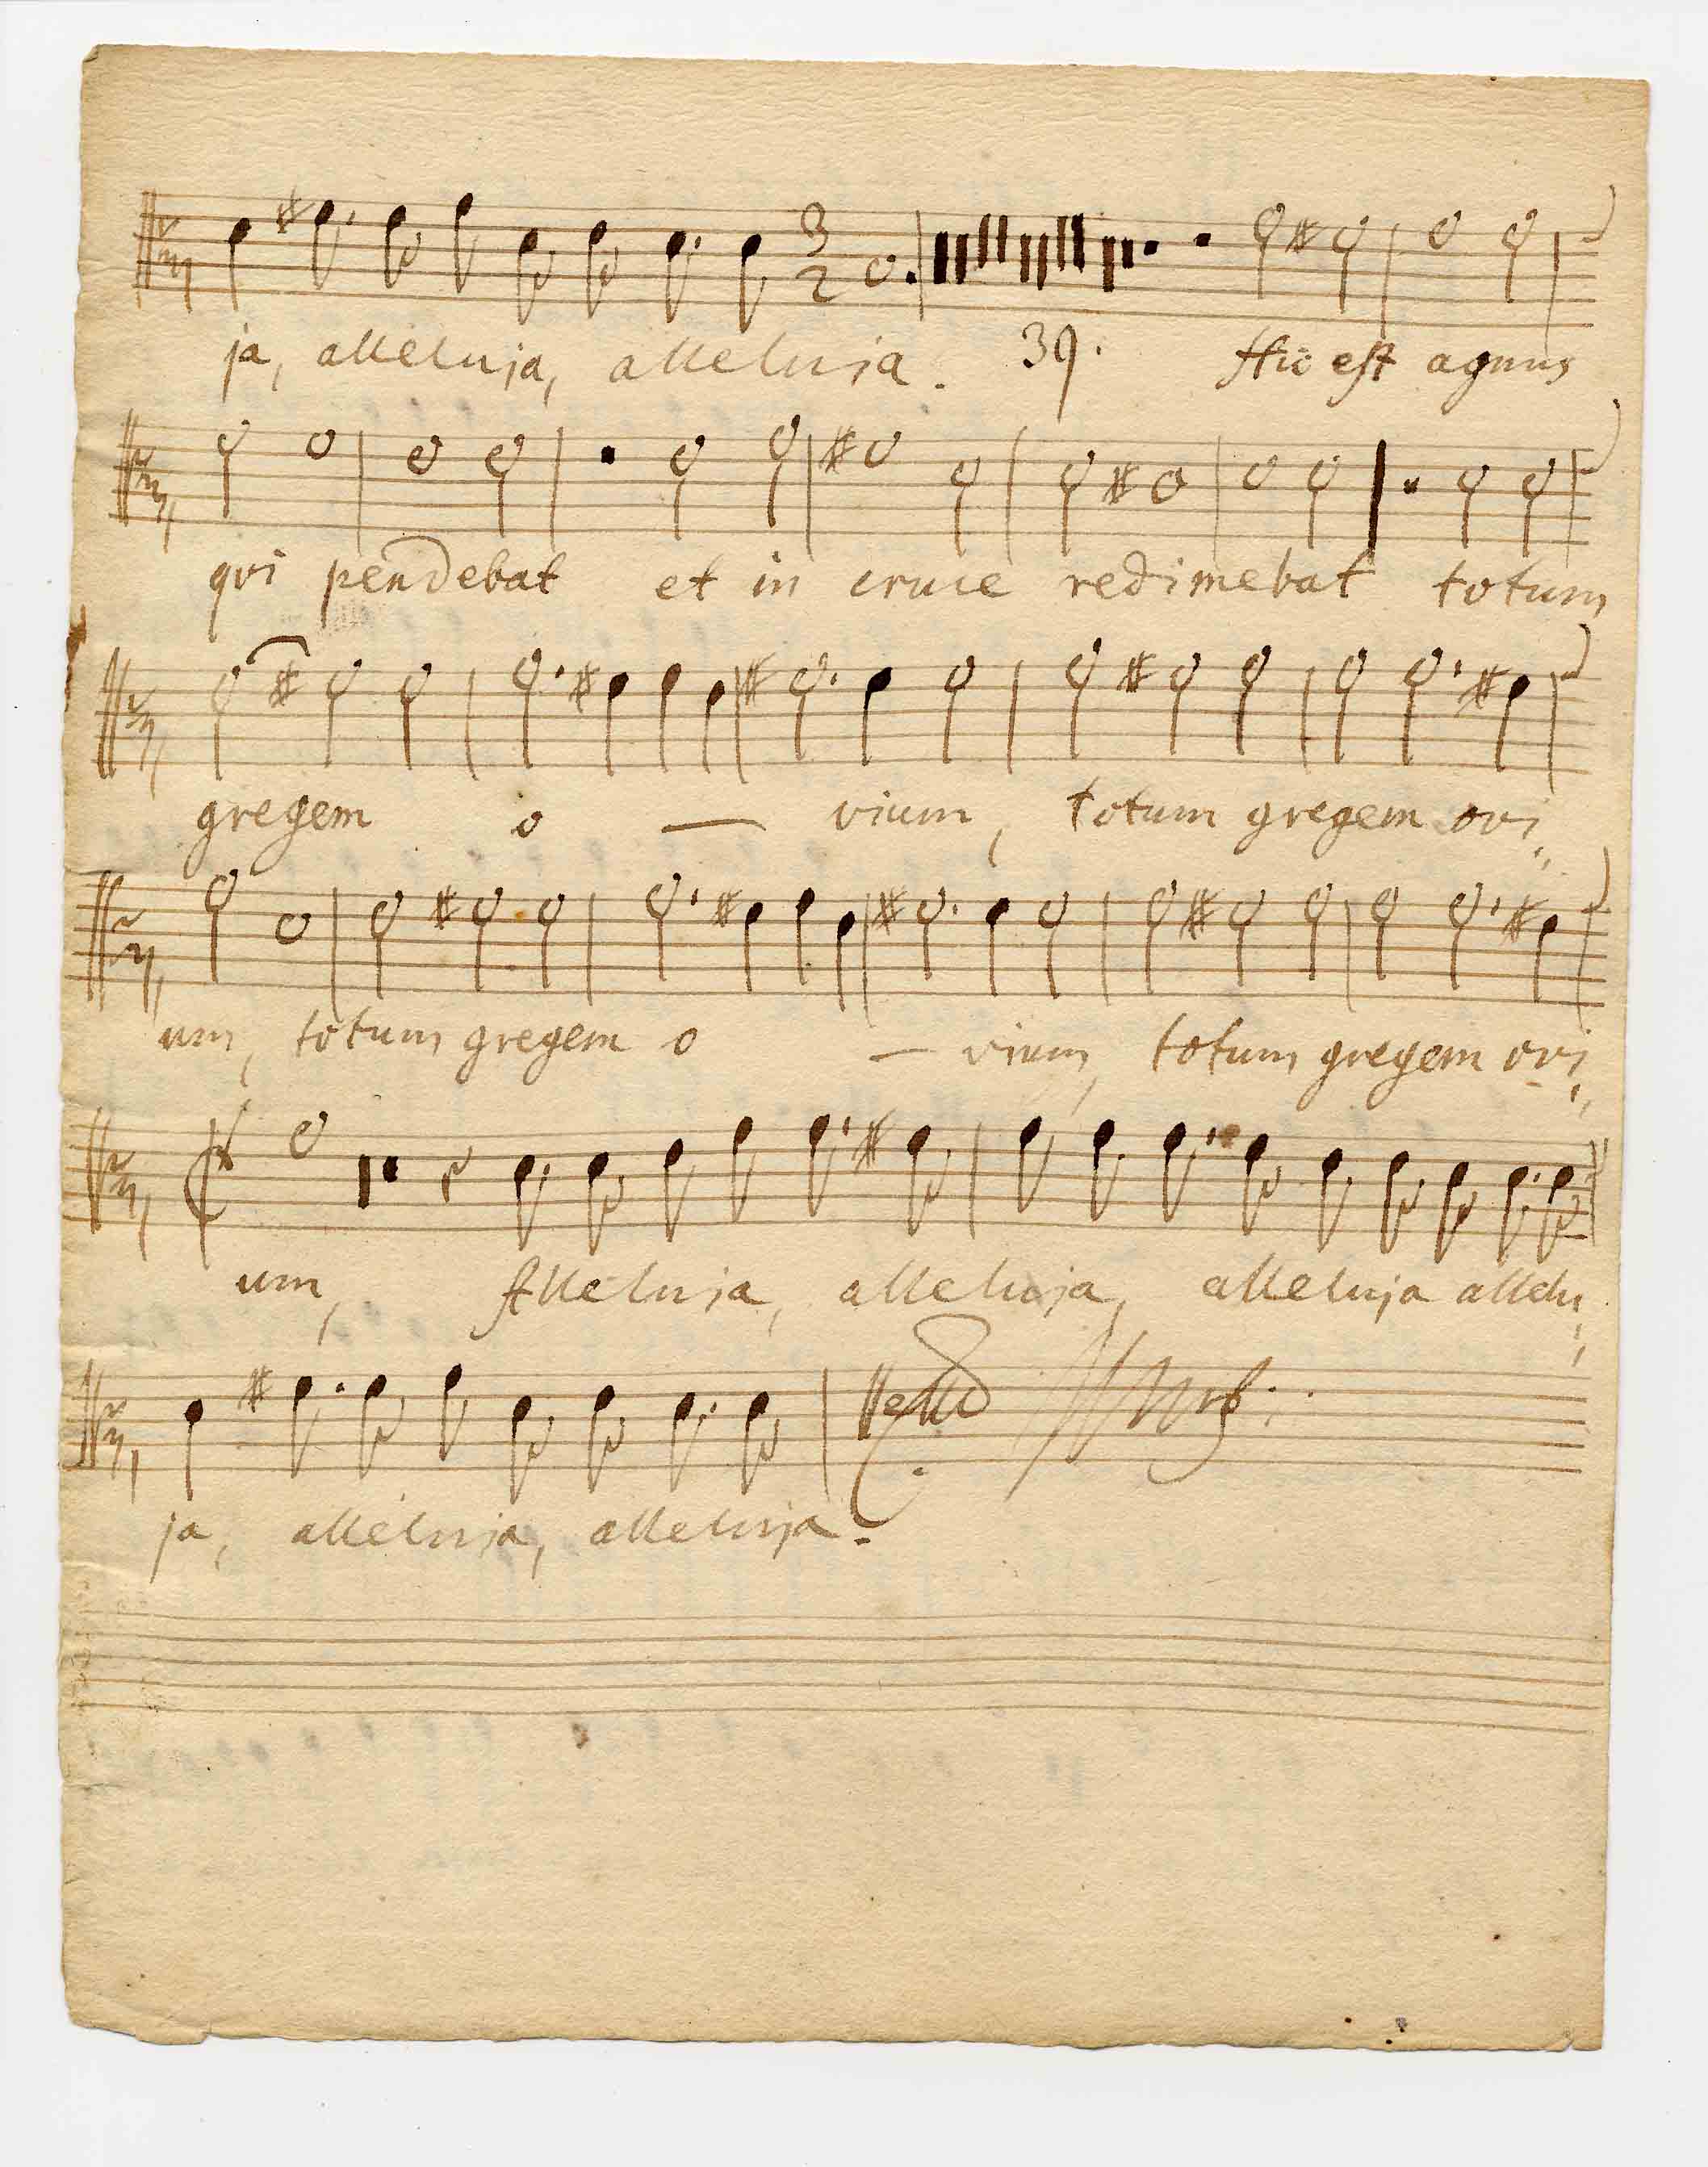 3
2
ja, alleluja, alleluja. 39. Hic est agnus
qvi pendebat et in cruce redimebat totum
gregem o — vium, totum gregem ovi,,
um, totum gregem o — vium, totum gregem ovi,,
um, Alleluja, alleluja, alleluja allelu,,
ja, alleluja, alleluja.